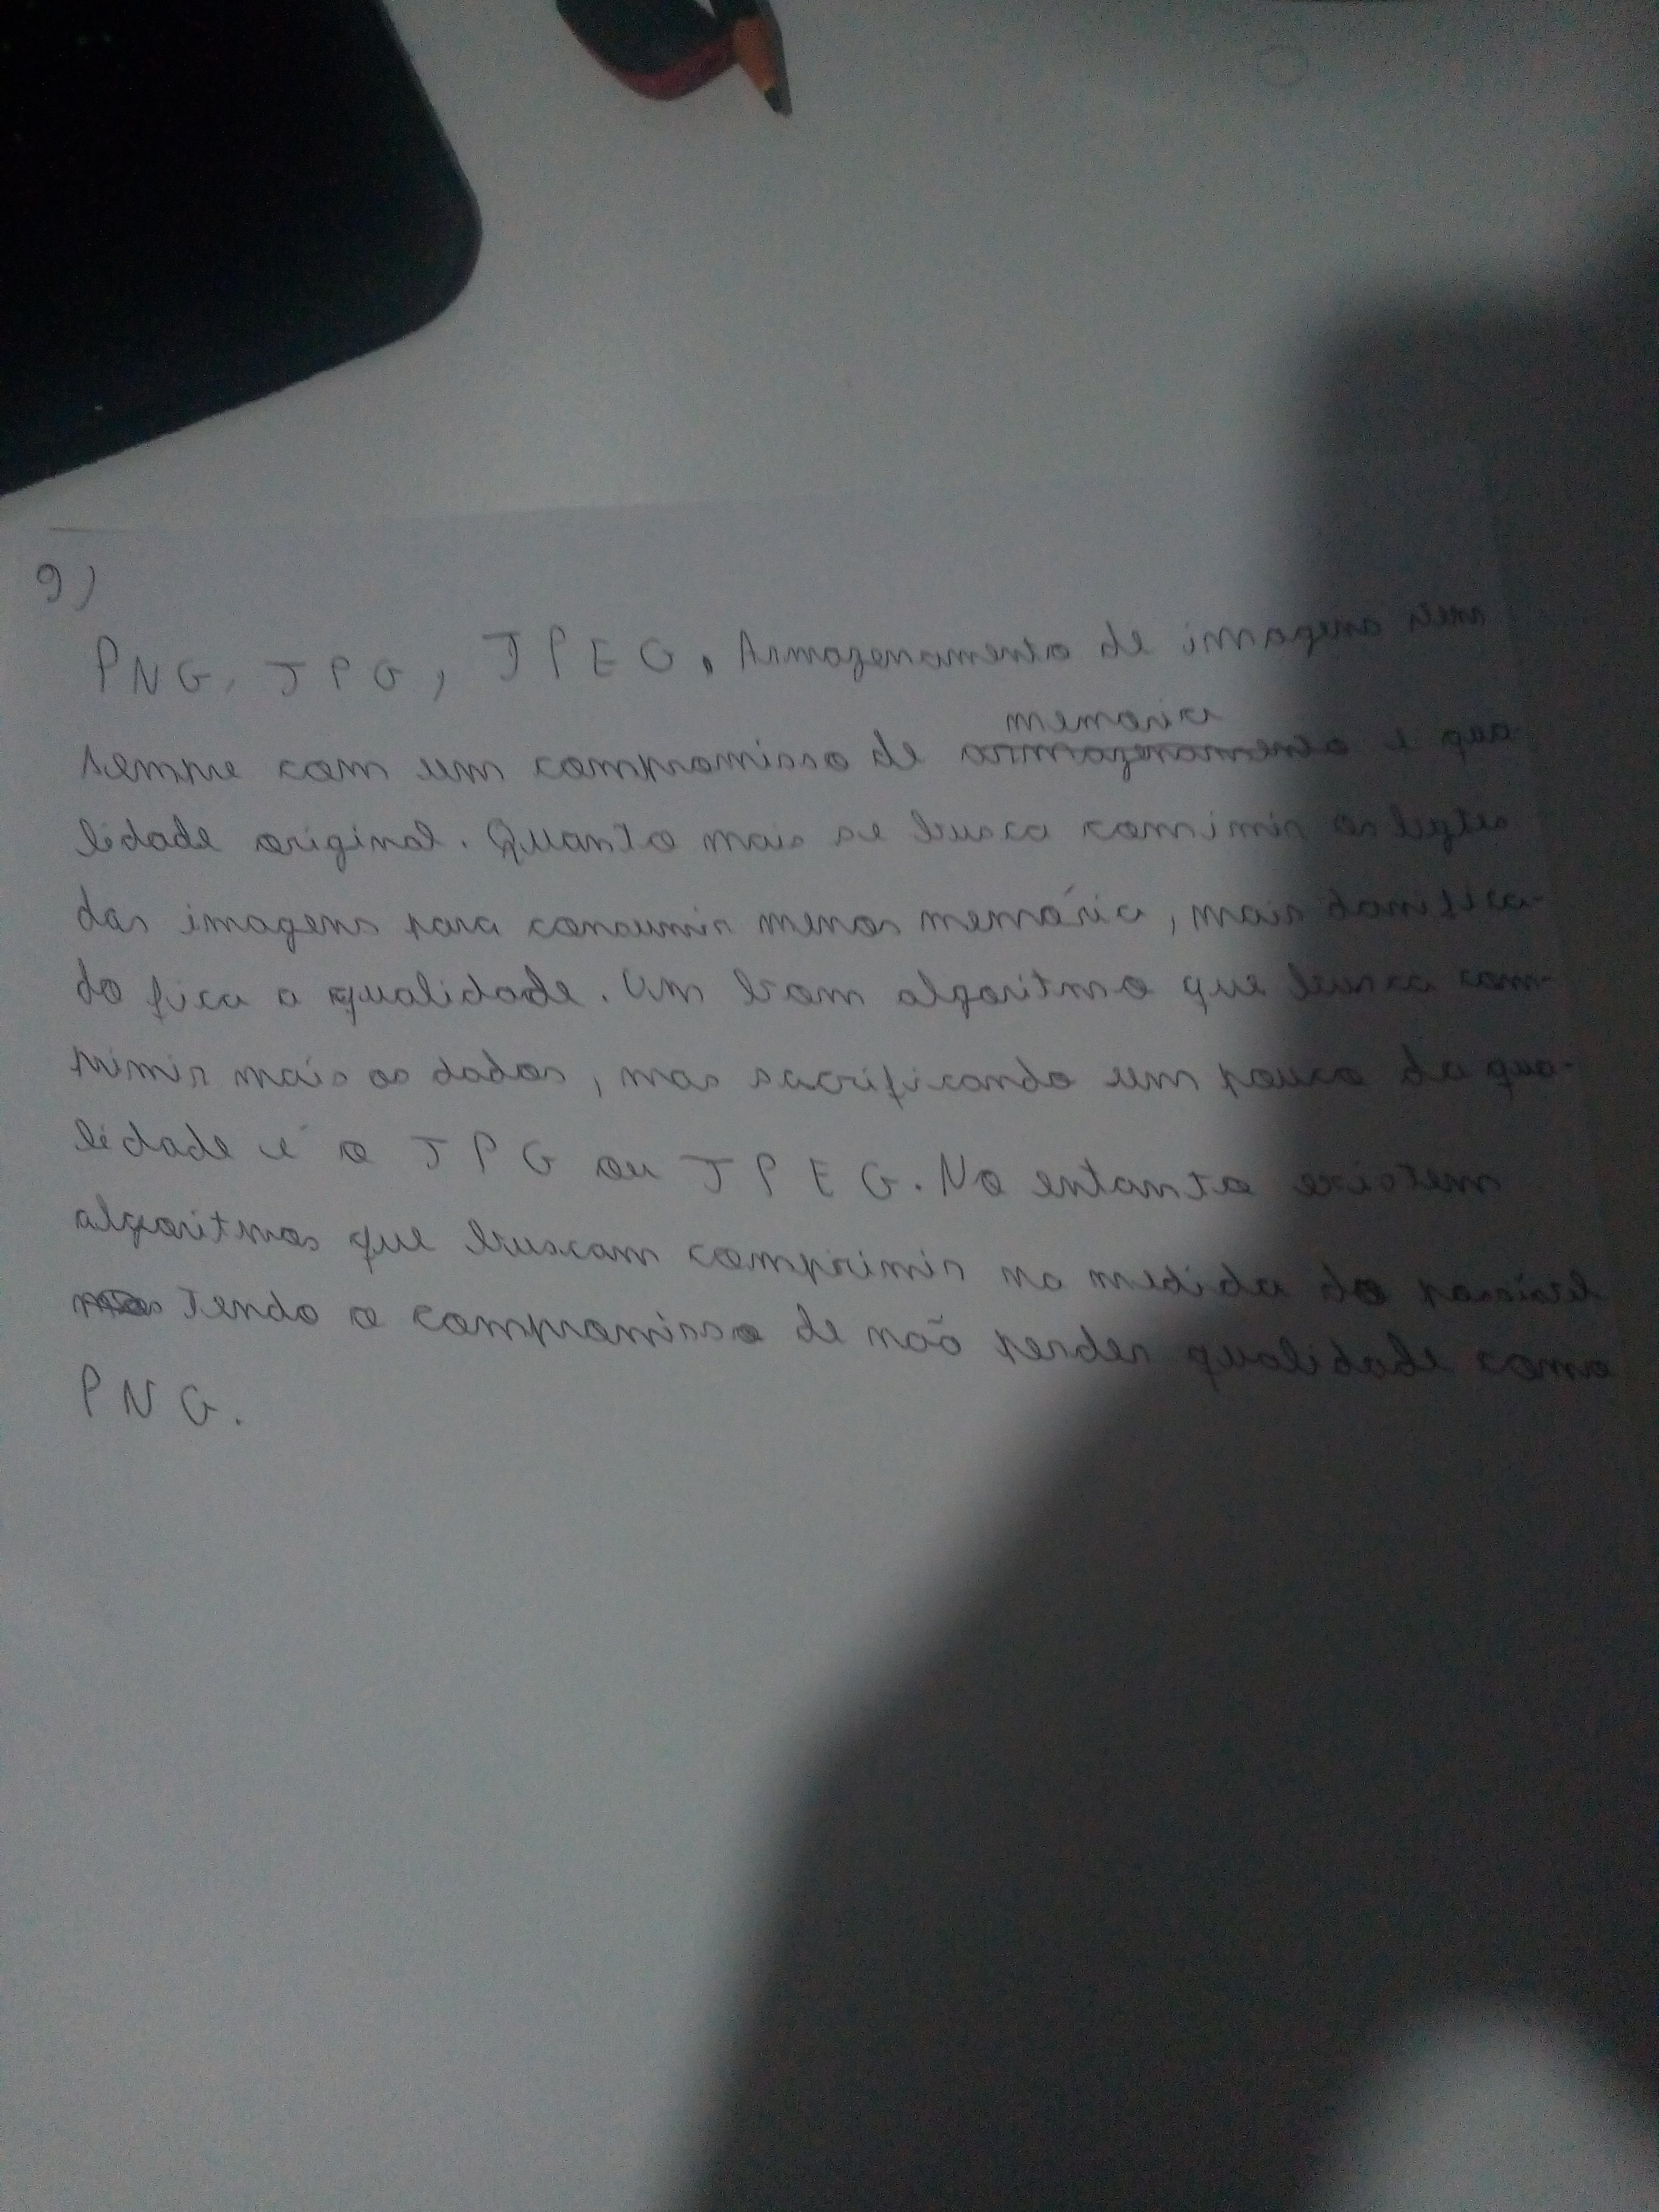 9)
PNG, JPG, JPEG. Armazenamento de imagens vem
memoria
sempre com um compromisso de armazenamento e qua-
lidade original. Quanto mais se busca comimir os bytes
das imagens para consumir menos memória, mais danifica-
do fica a qualidade. Um bom algoritmo que busca com-
primir mais os dados, mas sacrificando um pouco da qua-
lidade é o JPG ou JPEG. No entanto existem
algoritmos que buscam comprimir na medida do possível
tendo o compromisso de não perder qualidade como
PNG.